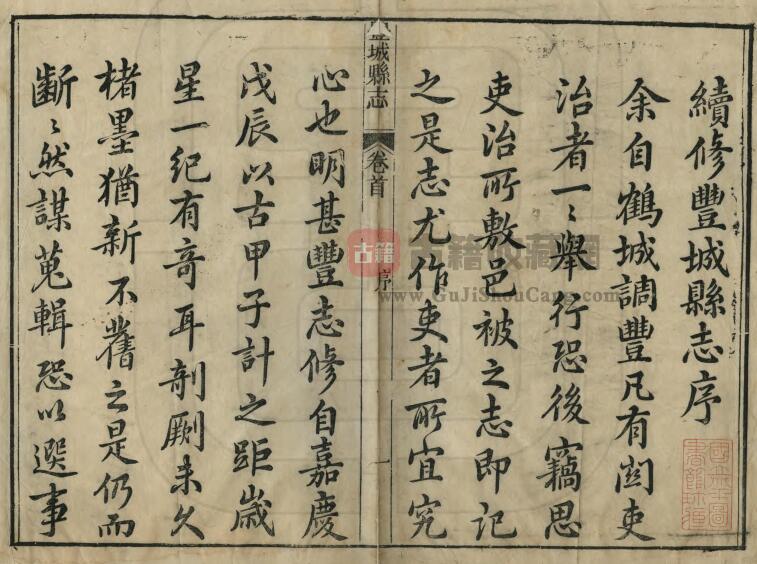 續修豐城縣志序
余自鶴城調豐凡有關吏
治者一〻舉行恐後竊思
吏治所敷邑被之志即記
之是志尤作吏者所宜究
豐城縣志
卷首
序
一
心也明甚豐志修自嘉慶
戊辰以古甲子計之距歲
星一紀有奇耳剞劂未久
楮墨猶新不舊之是仍而
斷〻然謀蒐輯恐以選事
古籍
古籍收藏網
www.GuJiShouCang.com